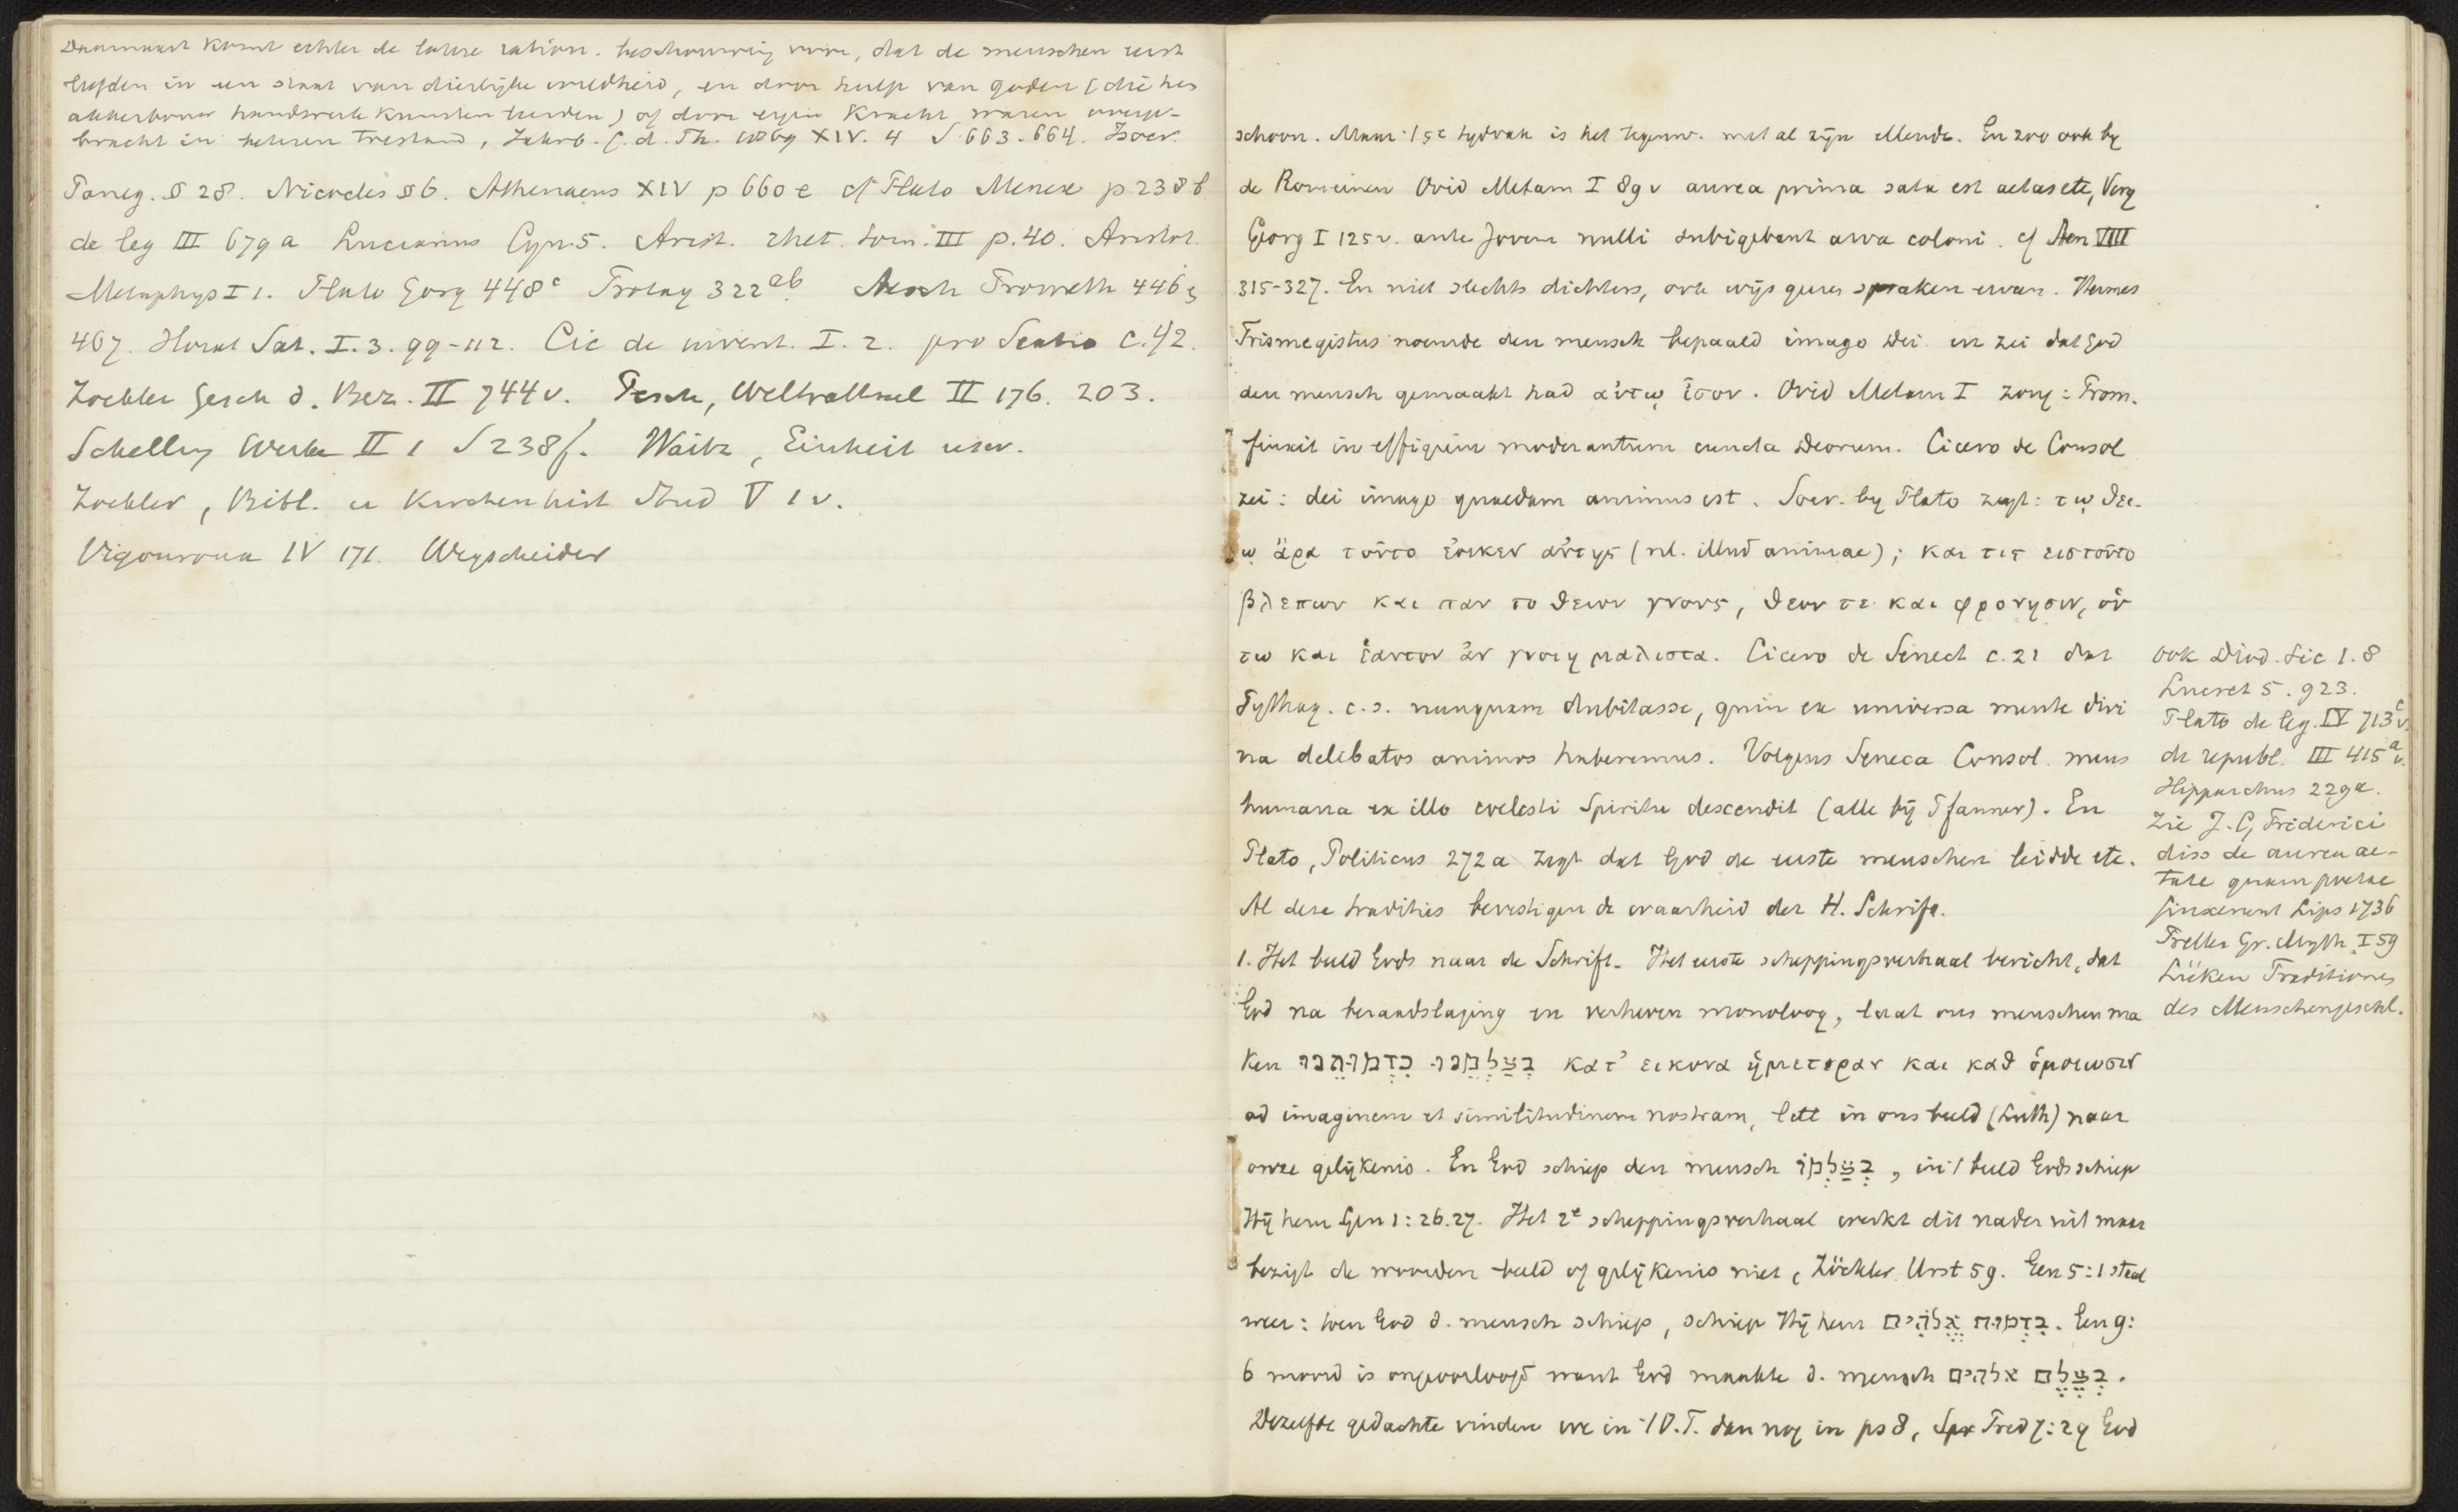 Daarnaast komt echter de latere ration. beschouwing voor, dat de menschen eerst
leefden in een staat van dierlijke wildheid, en door hulp van goden (die hen
akkerbouw handwerk kunsten leerden) of door eigen kracht waren overge-
bracht in beteren toestand, Jahrb. f. d. Th. 1869 XIV. 4 S 663-664. Isocr.
Paneg. § 28. Nicocles § 6. Athenaeus XIV p 660 e cf Plato Menex p 238 b
de leg III 679 a Lucianus Cyn. 5. Arist. rhet. tom. III p. 40. Aristot.
Metaphys I 1. Plato Gorg 448 c Protag 322 ab. Aesch Prometh 446,
467. Horat Sat. I. 3. 99-112. Cic de invent. I. 2. pro Sextio c. 42.
Zockler Gesch d. Bez. II 744 v. Pesch, Welträthsel II 176. 203.
Schelling Werke II 1 S 238 f. Waitz, Einheit usw.
Zockler, Bibl. u Kirchenhist Stud V 1 v.
Vigouroux IV 171. Wegscheider
schoon. Maar 't 5e tijdvak is het tegenw. met al zijn ellende. En zoo ook by
de Romeinen Ovid Metam I 89 v aurea prima sata est aetas etc, Verg
Georg I 125 v. ante Jovem nulli subigebant arva coloni. cf Aen VIII
315-327. En niet slechts dichters, ook wijsgeeren spraken ervan. Hermes
Trismegistus noemde den mensch bepaald imago Dei en zei dat God
den mensch gemaakt had αὐτῳ ἰσον. Ovid Metam I zong: Prom.
finxit in effigiem moderantum cuncta Deorum. Cicero de Consol
zei: dei imago quaedam animus est. Socr. by Plato zegt: τῳ θει-
ῳ ἄρα τοῦτο ἐοικεν αὐτης (nl. illud animae); και τις εις τοῦτο
βλεπων και παν το θειον γνους, θεον τε και φρονησιν, οὑ
τω και ἑαυτον ἀν γνοιη μαλιστα. Cicero de Senect c. 21 dat
Pythag. c.s. nunquam dubitasse, quin ex universa mente divi
na delibatos animos haberemus. Volgens Seneca Consol. mens
humana ex illo coelesti Spiritu descendit (alle bij Pfanner). En
Plato, Politicus 272 a zegt dat God de eerste menschen leidde etc.
Al deze tradities bevestigen de waarheid der H. Schrift.
1. Het beeld Gods naar de Schrift. Het eerste scheppingsverhaal bericht, dat
God na beraadslaging en verheven monoloog, laat ons menschen ma
ken בְּצַלְמֵנוּ כִּדְמוּתֵנוּ κατ' εικονα ἡμετεραν και καθ ὁμοιωσιν
ad imaginem et similitudinem nostram, lett in ons beeld (Luth) naar
onze gelijkenis. En God schiep den mensch בְּצַלְמוֹ, in 't beeld Gods schiep
Hij hem Gen 1:26.27. Het 2e scheppingsverhaal werkt dit nader uit maar
bezigt de woorden beeld of gelijkenis niet, Zöckler Urst 59. Gen 5:1 staat
weer: toen God d. mensch schiep, schiep Hij hem בִּדְמוּת אֱלֹהִים. Gen 9:
6 moord is ongeoorloofd want God maakte d. mensch בְּצֶלֶם אלהים.
Dezelfde gedachte vinden we in 't O.T. dan nog in ps 8, Pred 7:29 God
ook Diod. Sic 1. 8
Lucret 5. 923.
Plato de leg. IV 713 c v.
de republ. III 415 a v.
Hipparchus 229 a.
Zie J. G, Friderici
diss de aurea ae-
tate quam poetae
finxerunt Lips 1736
Preller Gr. Myth I 59
Lüken Traditionen
des Menschengeschl.